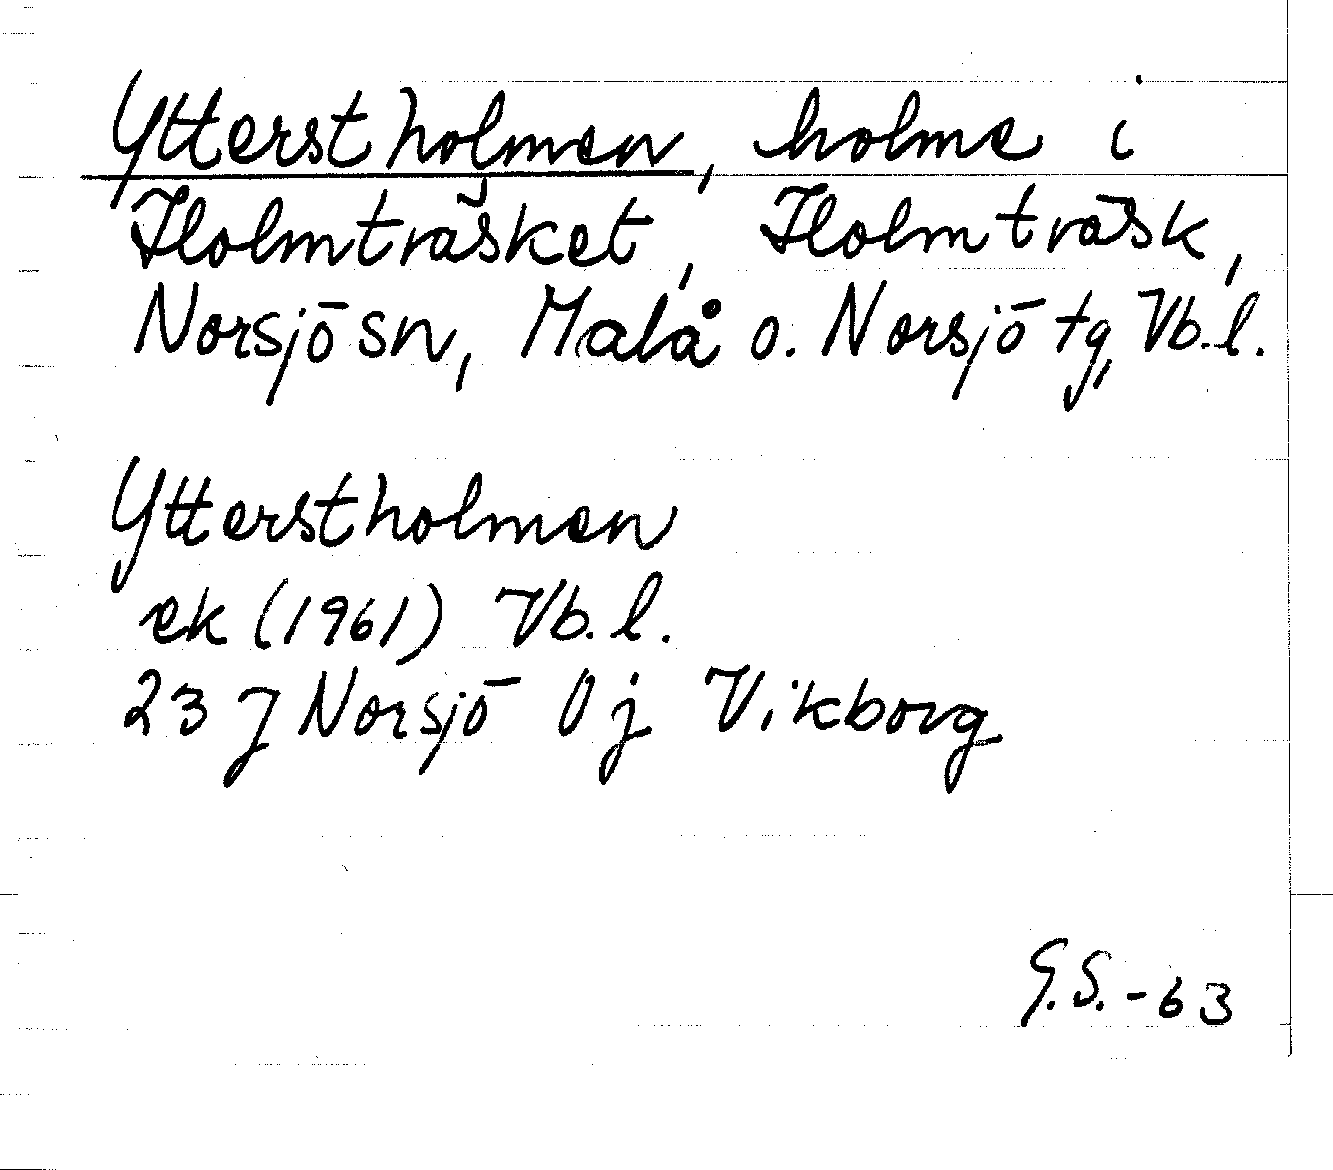 Ytterstholmen, holme i
Holmträsket, Holmträsk,
Norsjö sn, Malå o. Norsjö tg, Vb.l.
Ytterstholmen
ek (1961) Vb.l.
23 J Norsjö 0 j Vikborg
G.S.-63